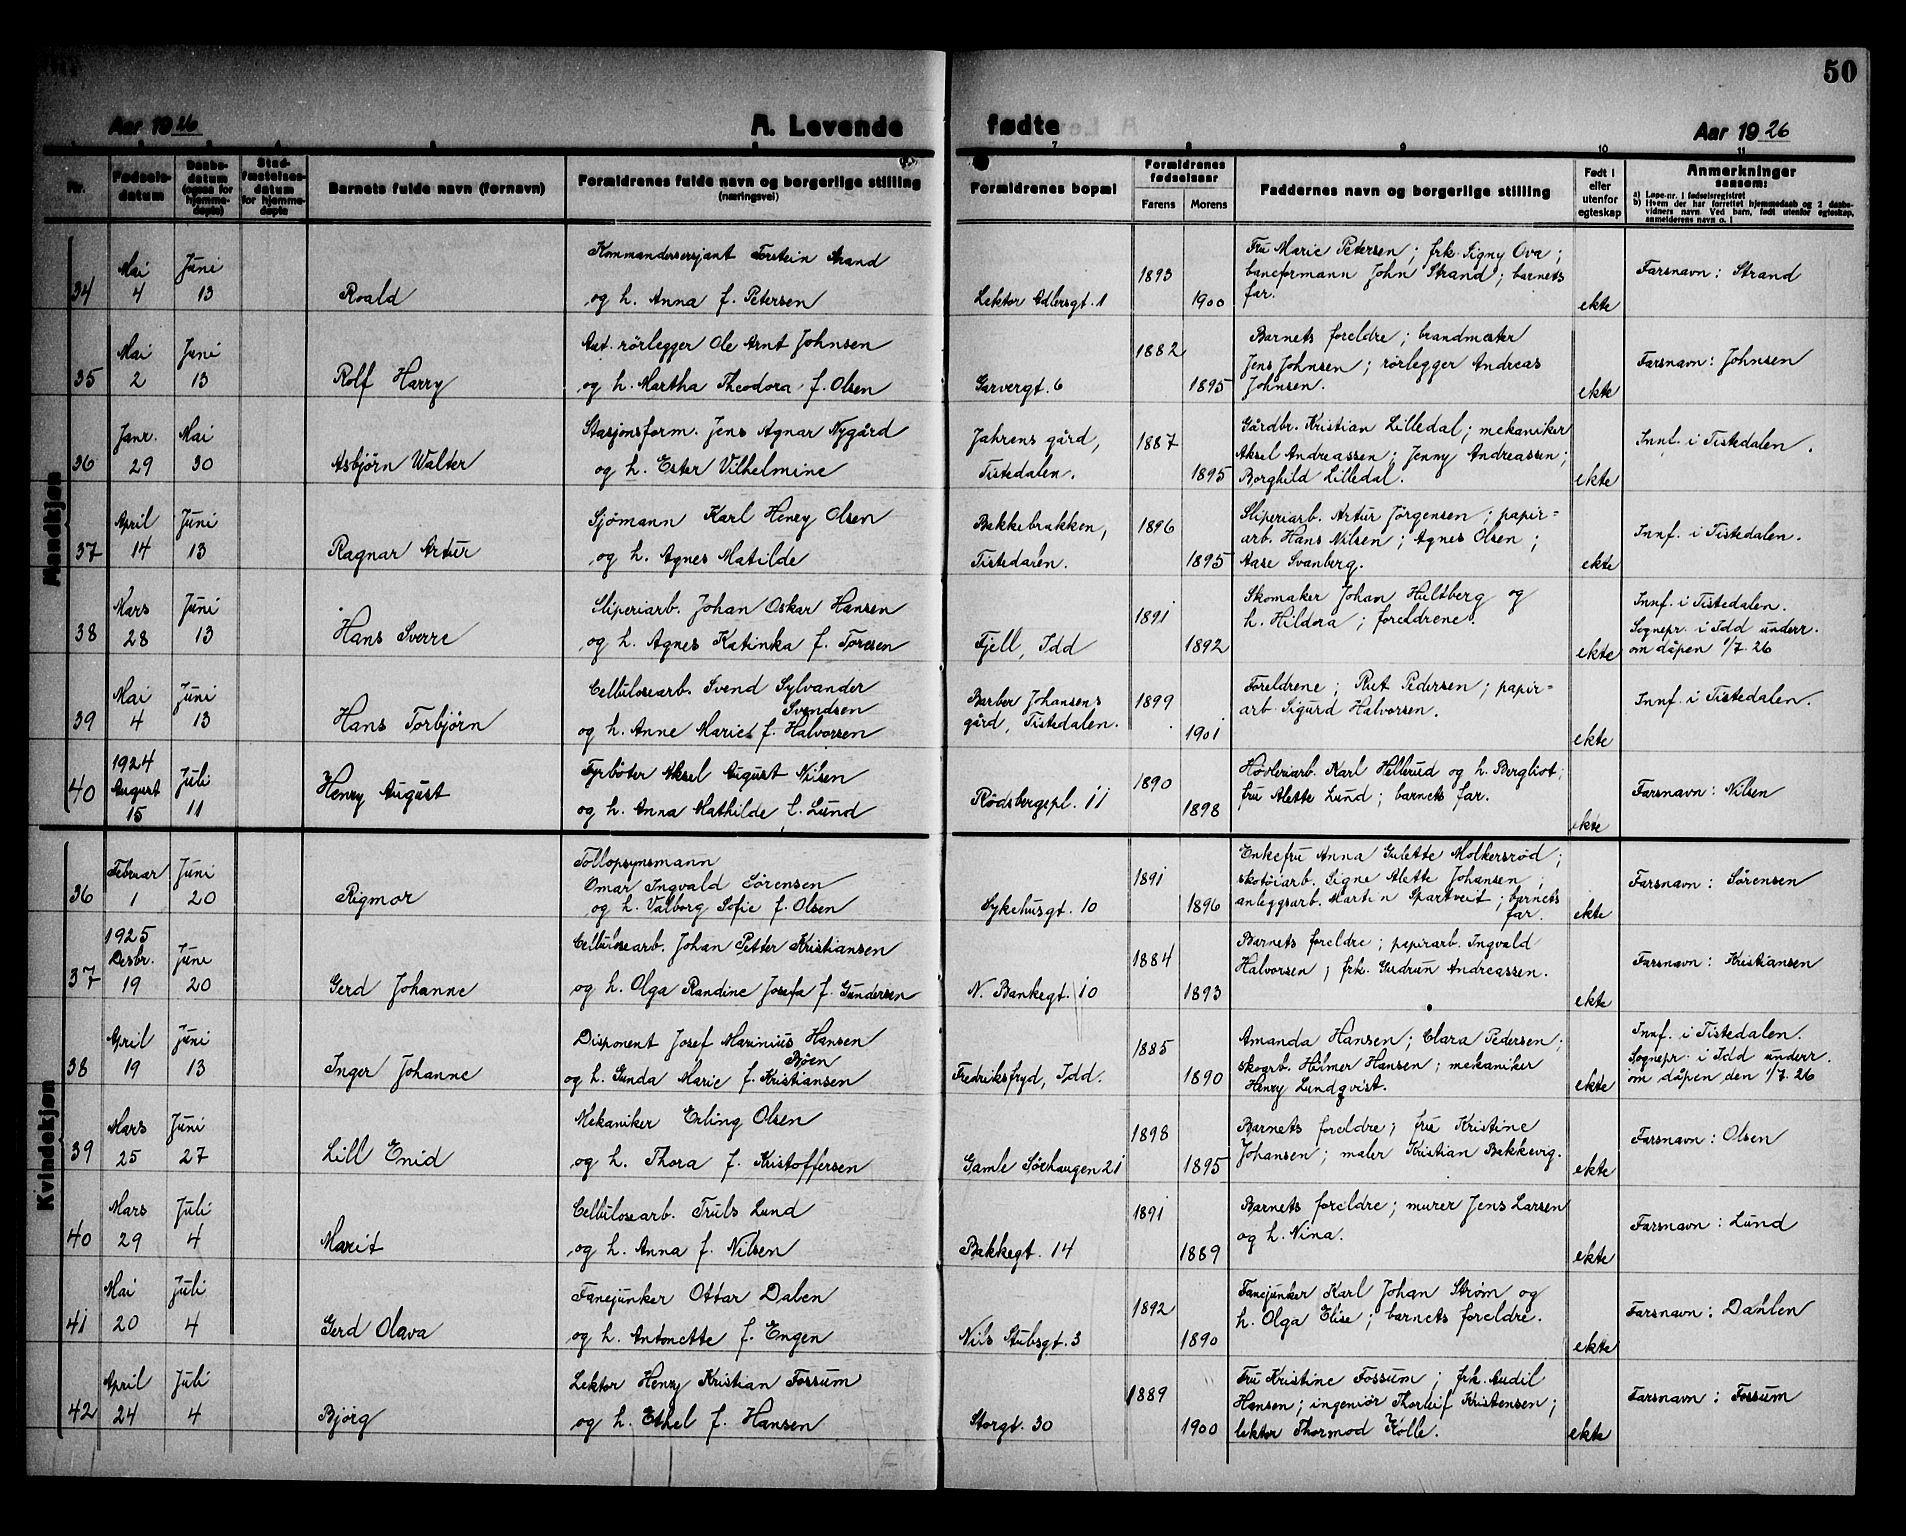 50
Aar 1926
A. Levende
fødte
Aar 1926
Nr.
Fødsels-
datum
Daabs-
datum
(ogsaa for
hjemme-
døpte)
Stad-
fæstelses-
datum
for hjemme-
døpte
Barnets fulde navn (fornavn)
Forældrenes fulde navn og borgerlige stilling
(næringsvei)
7
8
9
10
11
Forældrenes bopæl
Forældrenes
fødselsaar
Farens
Morens
Faddernes navn og borgerlige stilling
Født i
eller
utenfor
egteskap
Anmerkninger
saasom:
a) Løpe-nr. i fødselsregistret
b) Hvem der har forrettet hjemmedaab og 2 daabs-
vidners navn. Ved barn, født utenfor egteskap,
anmelderens navn o. l
Mandkjøn
34
Mai
4
Juni
13
Roald
Kommandersersjant Torstein Strand
og h. Anna f. Petersen
Lektor Adlersgt. 1
1893
1900
Fru Marie Petersen; frk. Signy Ova;
baneformann John Strand; barnets
far.
ekte
Farsnavn: Strand
35
Mai
2
Juni
13
Rolf Harry
Aut. rörlegger Ole Arnt Johnsen
og h. Martha Theodora f. Olsen
Garvergt. 6
1882
1895
Barnets foreldre; brandmæter
Jens Johnsen; rørlegger Andreas
Johnsen.
ekte
Farsnavn: Johnsen
36
Janr.
29
Mai
30
Asbjörn Walter
Stasjonsform. Jens Agnar Nygård
og h. Ester Vilhelmine
Jahrens gård,
Tistedalen.
1887
1895
Gårdbr. Kristian Lilledal; mekaniker
Aksel Andreassen; Jenny Andreassen;
Borghild Lilledal.
ekte
Innf. i Tistedalen.
37
April
14
Juni
13
Ragnar Artur
Sjömann Karl Henry Olsen
og h. Agnes Matilde
Bakkebrakken,
Tistedalen.
1896
1895
Sliperiarb. Artur Jörgensen; papir=
arb. Hans Nilsen; Agnes Olsen;
Aase Svanberg.
ekte
Innf. i Tistedalen.
38
Mars
28
Juni
13
Hans Sverre
Sliperiarb. Johan Oskar Hansen
og h. Agnes Katinka f. Toresen
Fjell, Idd
1891
1892
Skomaker Johan Hultberg og
h. Hildora; foreldrene.
ekte
Innf. i Tistedalen.
Sognepr. i Idd underr.
om dåpen 1/7. 26
39
Mai
4
Juni
13
Hans Torbjörn
Cellulosearb. Svend Sylvander
Svendsen
og h. Anne Marie f. Halvorsen
Barber Johansens
gård, Tistedalen.
1899
1901
Foreldrene; Rut Pedersen; papir=
arb. Sigurd Halvorsen.
ekte
Innf. i Tistedalen.
40
1924
August
15
Juli
11
Henry August
Fyrböter Aksel August Nilsen
og h. Anna Mathilde f. Lund
Rödsbergspl. 11
1890
1898
Høvleriarb. Karl Hellerud og h. Bergliot;
fru Alette Lund; barnets far.
ekte
Farsnavn: Nilsen
Kvindekjøn
36
Februar
1
Juni
20
Rigmor
Tollopsynsmann
Omar Ingvald Sörensen
og h. Valborg Sofie f. Olsen
Sykehusgt. 10
1891
1896
Enkefru Anna Gulette Molkersrød;
skotøiarb. Signe Alette Johansen;
anleggsarb. Martin Spartveit; barnets
far.
ekte
Farsnavn: Sørensen
37
1925
Desbr.
19
Juni
20
Gerd Johanne
Cellulosearb. Johan Petter Kristiansen
og h. Olga Randine Josefa f. Gundersen
N. Bankegt. 10
1884
1893
Barnets foreldre; papirarb. Ingvald
Halvorsen; frk. Gudrun Andreassen.
ekte
Farsnavn: Kristiansen
38
April
19
Juni
13
Inger Johanne
Disponent Josef Marinius Hansen
Böen
og h. Gunda Marie f. Kristiansen
Fredriksfryd, Idd.
1885
1890
Amanda Hansen; Clara Pedersen;
skoarb. Hilmer Hansen; mekaniker
Henry Lundqvist.
ekte
Innf. i Tistedalen.
Sognepr. i Idd underr.
om dåpen den 1/7. 26
39
Mars
25
Juni
27
Lill Enid
Mekaniker Erling Olsen
og h. Thora f. Kristoffersen
Gamle Sörhaugen 21
1898
1895
Barnets foreldre; fru Kristine
Johansen; maler Kristian Bakkevig.
ekte
Farsnavn: Olsen
40
Mars
29
Juli
4
Marit
Cellulosearb. Truls Lund
og h. Anna f. Nilsen
Bakkegt. 14
1891
1889
Barnets foreldre; murer Jens Larsen
og h. Nina.
ekte
Farsnavn: Lund
41
Mai
20
Juli
4
Gerd Olava
Fanejunker Ottar Dalen
og h. Antonette f. Engen
Nils Stubsgt. 3
1892
1890
Fanejunker Karl Johan Strøm og
h. Olga Elise; barnets foreldre.
ekte
Farsnavn: Dahlen
42
April
24
Juli
4
Bjørg
Lektor Henry Kristian Fossum
og h. Ethel f. Hansen
Storgt. 30
1889
1900
Fru Kristine Fossum; frk. Audil
Hansen; ingeniør Thorleif Kristensen;
lektor Thormod Kolle.
ekte
Farsnavn: Fossum